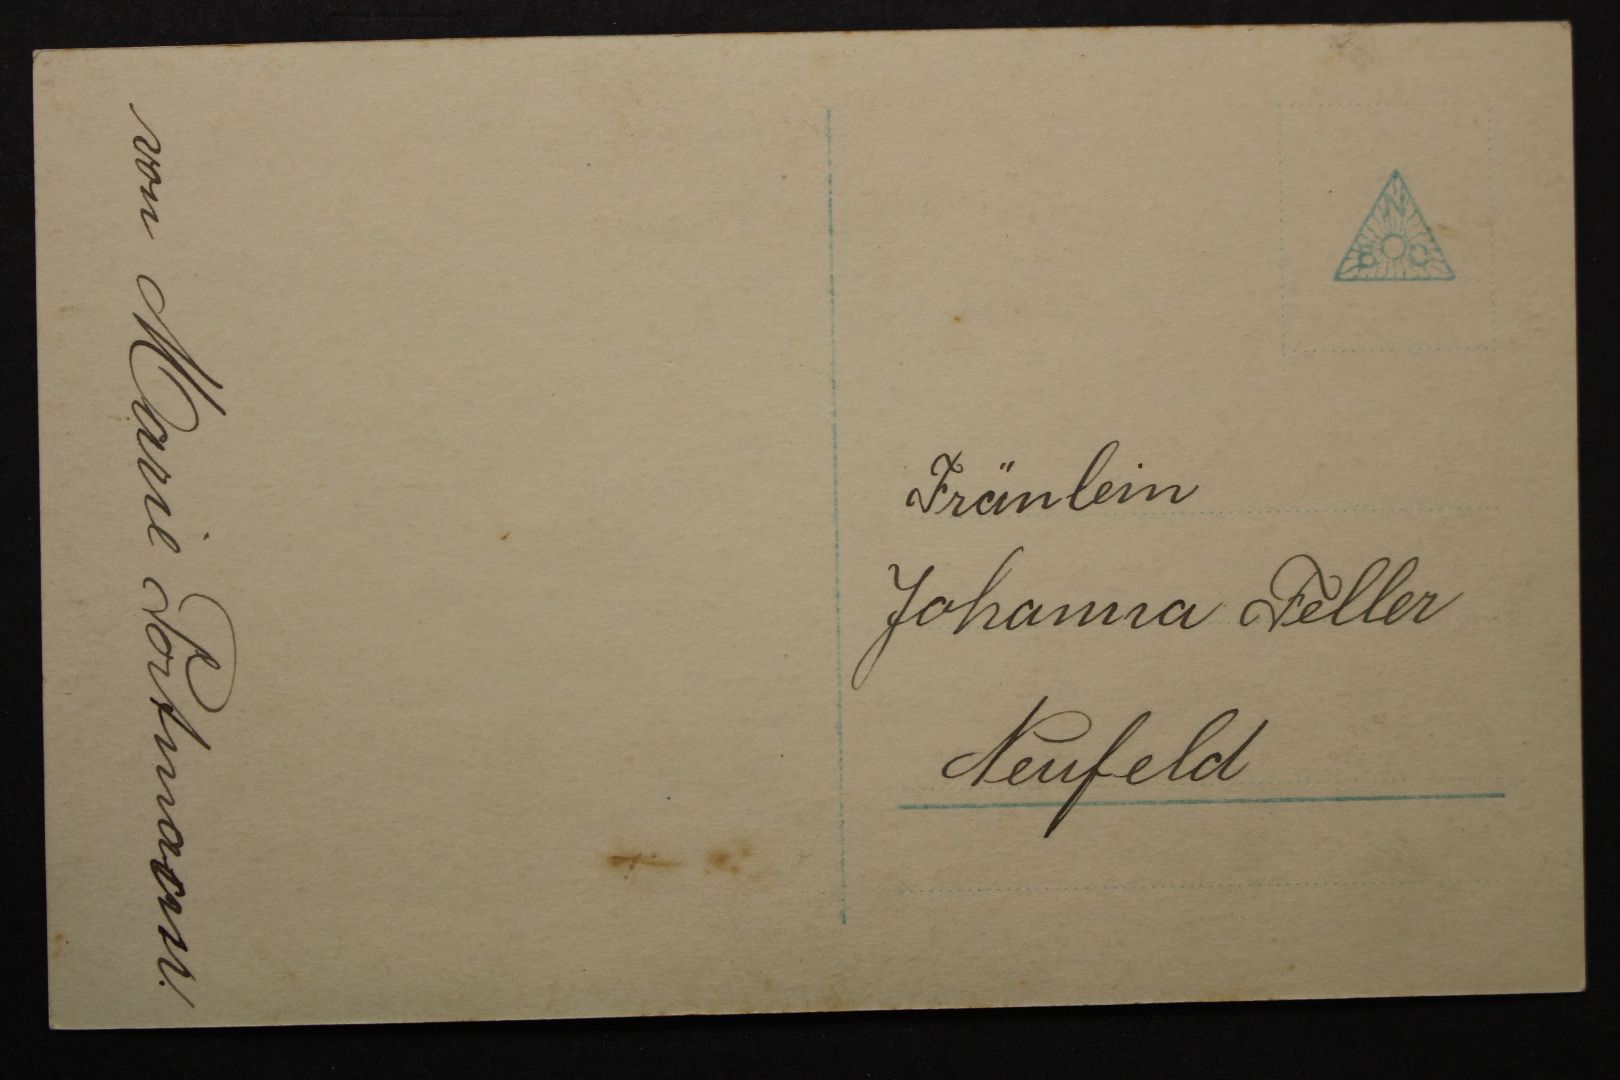 von Marie Portmann!
N
B C
Fräulein
Johanna Feller
Neufeld